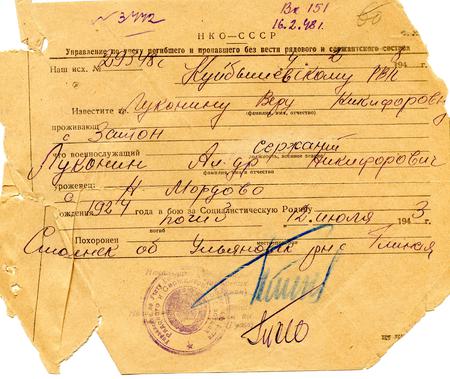 № 3442
Вх 151
16.2.48 г.
НКО—СССР
Управление по учету погибшего и пропавшего без вести рядового и сержантского состава
Наш исх. №
194
Куйбышевскому РВК
Известите
Луконину Веру Никифоровну
(фамилия, имя, отчество)
проживающ
с Затон
что военнослужащий сержант
Луконин Ал-др Никифорович
фамилия, имя и отчество
уроженец:
Н Мордово
рождения 1924 года в бою за Социалистическую Родину
погиб 12 июля 1943
погиб
Похоронен
Смоленск об Ульяновск р-н с Глиная